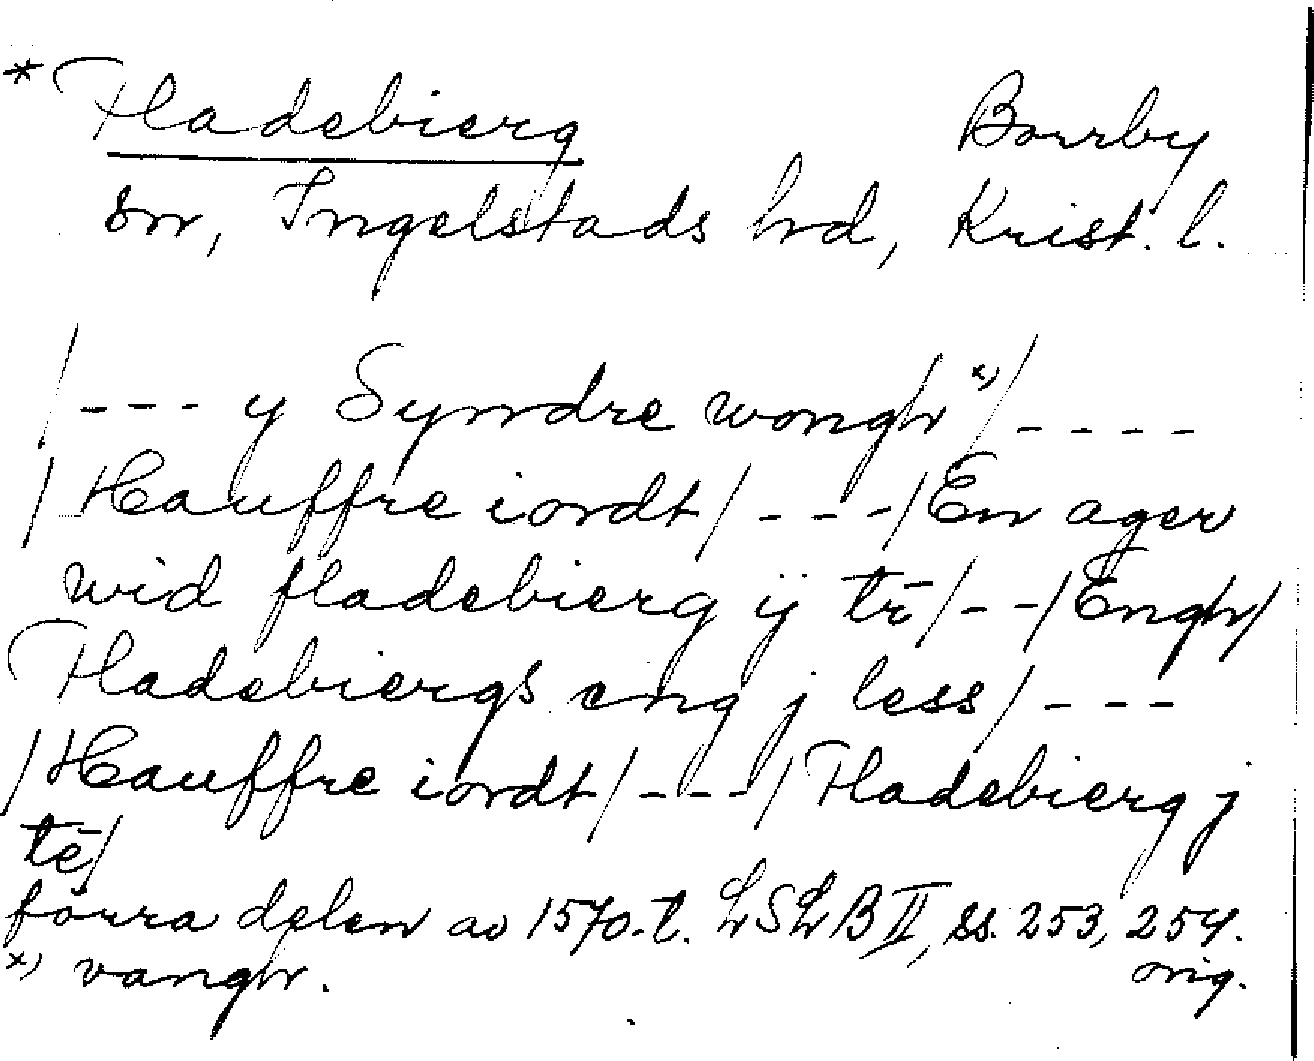 * Fladebierg Borrby
sn, Ingelstads hrd, Krist. l.
/--- y Syndre wongh x)/----
/Hauffre iordt/---/En ager
wid fladebierg ij tē/--/Engh/
Fladebiergs eng j less/---
/Hauffre iordt/---/Fladebierg j
tē/
förra delen av 1570-t. LSLB II, ss. 253, 254.
x) vangh. orig.